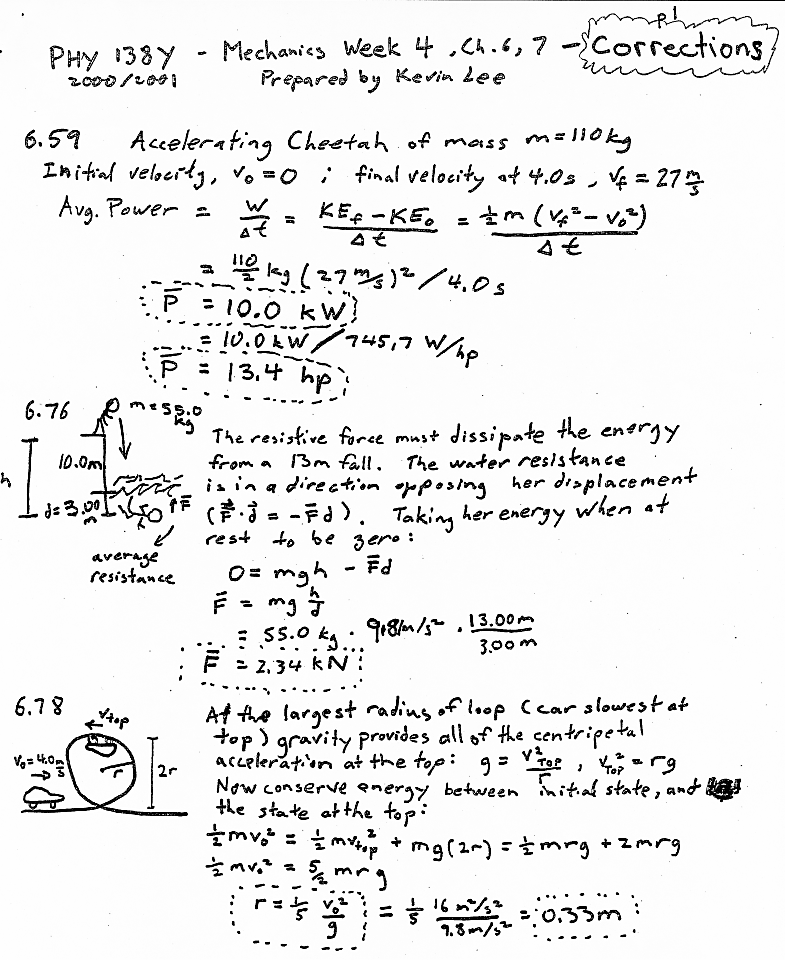 p1
PHY 138Y - Mechanics Week 4, Ch. 6, 7 - Corrections
2000/2001 Prepared by Kevin Lee
6.59 Accelerating Cheetah of mass m=110kg
Initial velocity, v₀=0 ; final velocity at 4.0s, v_f = 27 m/s
Avg. Power = W/Δt = (KE_f - KE₀)/Δt = ½m(v_f² - v₀²)/Δt
= 110/2 kg (27 m/s)² / 4.0s
P̄ = 10.0 kW
= 10.0 kW / 745.7 W/hp
P̄ = 13.4 hp
6.76
m=55.0 kg
10.0m
h
d=3.00 m
F̄
average
resistance
The resistive force must dissipate the energy
from a 13m fall. The water resistance
is in a direction opposing her displacement
(F̄⃗·d⃗ = -F̄d). Taking her energy when at
rest to be zero:
0 = mgh - F̄d
F̄ = mg h/d
= 55.0 kg · 9.81m/s² · 13.00m/3.00m
F̄ = 2.34 kN
6.78
v_top
v₀=4.0 m/s
r
2r
At the largest radius of loop (car slowest at
top) gravity provides all of the centripetal
acceleration at the top: g = v²_TOP/r , v²_TOP = rg
Now conserve energy between initial state, and
the state at the top:
½mv₀² = ½mv_top² + mg(2r) = ½mrg + 2mrg
½mv₀² = 5/2 mrg
r = 1/5 v₀²/g = 1/5 16 m²/s²/9.8m/s² = 0.33m